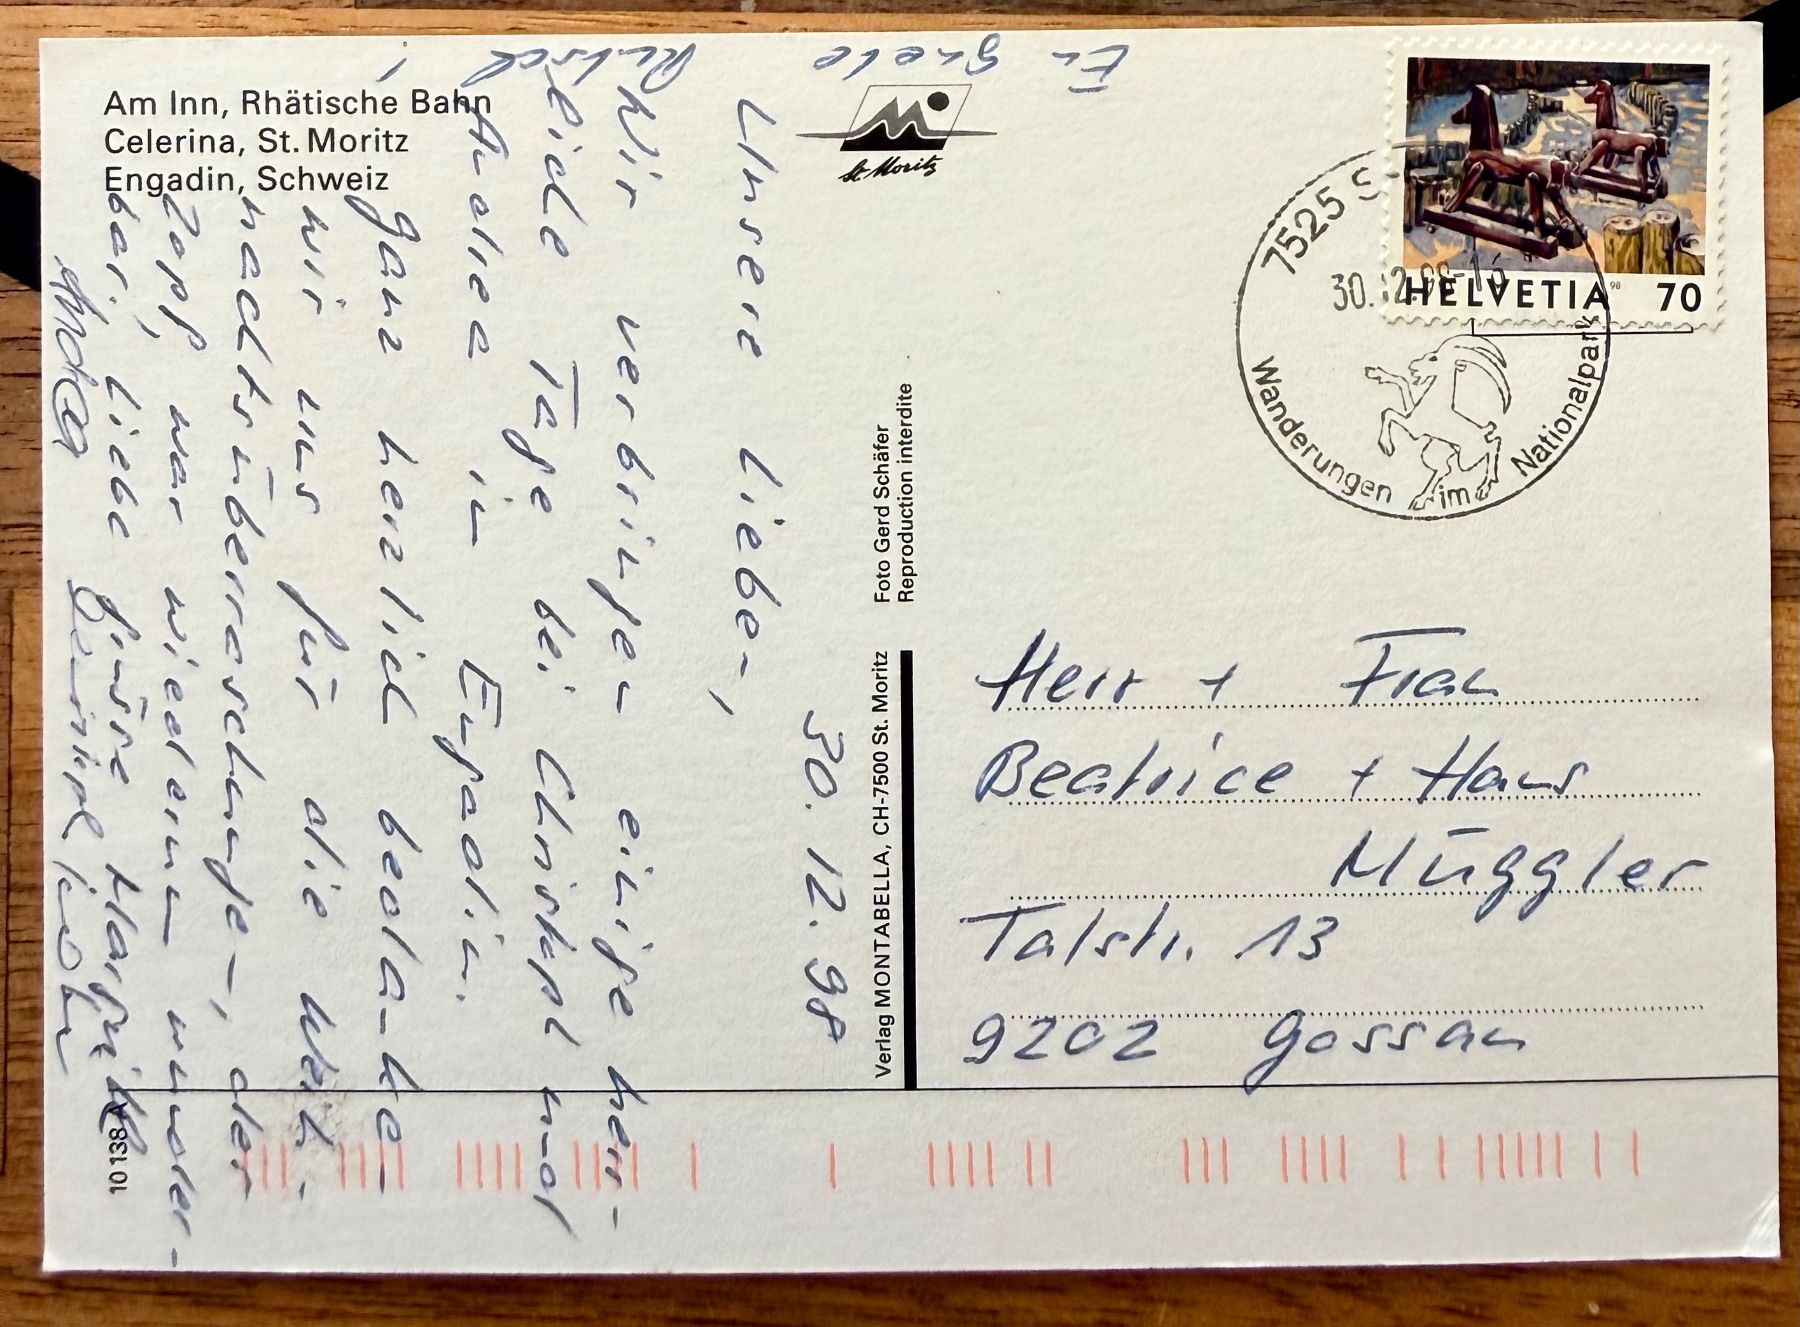 Am Inn, Rhätische Bahn
Celerina, St. Moritz
Engadin, Schweiz
St. Moritz
HELVETIA 98 70
7525 S
30.12.98-16
Wanderungen im Nationalpark
Foto Gerd Schäfer
Reproduction interdite
Verlag MONTABELLA, CH-7500 St. Moritz
10 138
30.12.98
Unsere Lieben,
Wir verbringen einige herr-
liche Tage bei Christoph und
Andrea im Engadin.
Ganz herzlich bedanken
wir uns für die Weih-
nachtsüberraschungen, der
Zopf war wiederum wunder-
bar. Liebe Grüsse
Andrea
En guete
Rutsch!
Herr + Frau
Beatrice + Hans
Müggler
Talstr. 13
9202 Gossau